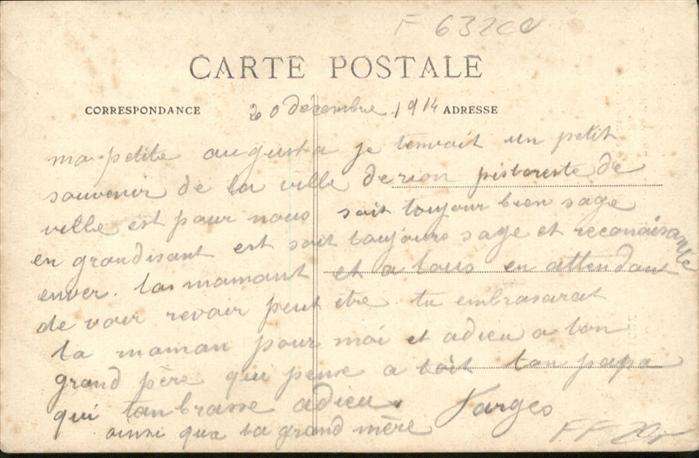 F 6320
CARTE POSTALE
CORRESPONDANCE 20 décembre 1914 ADRESSE
ma petite augusta je tenvait un petit
souvenir de la ville de rion de
ville est pour nous soit toujour bien sage
en grandisant est soit toujours sage et reconaisande
enver ta mamant et a tous en attendant
de voir revoir peut être tu embrasarat
ta maman pour moi et adieu a ton
grand père qui pense a toit ton papa
qui tanbrasse adieu Farges
ainsi qua ta grand mère